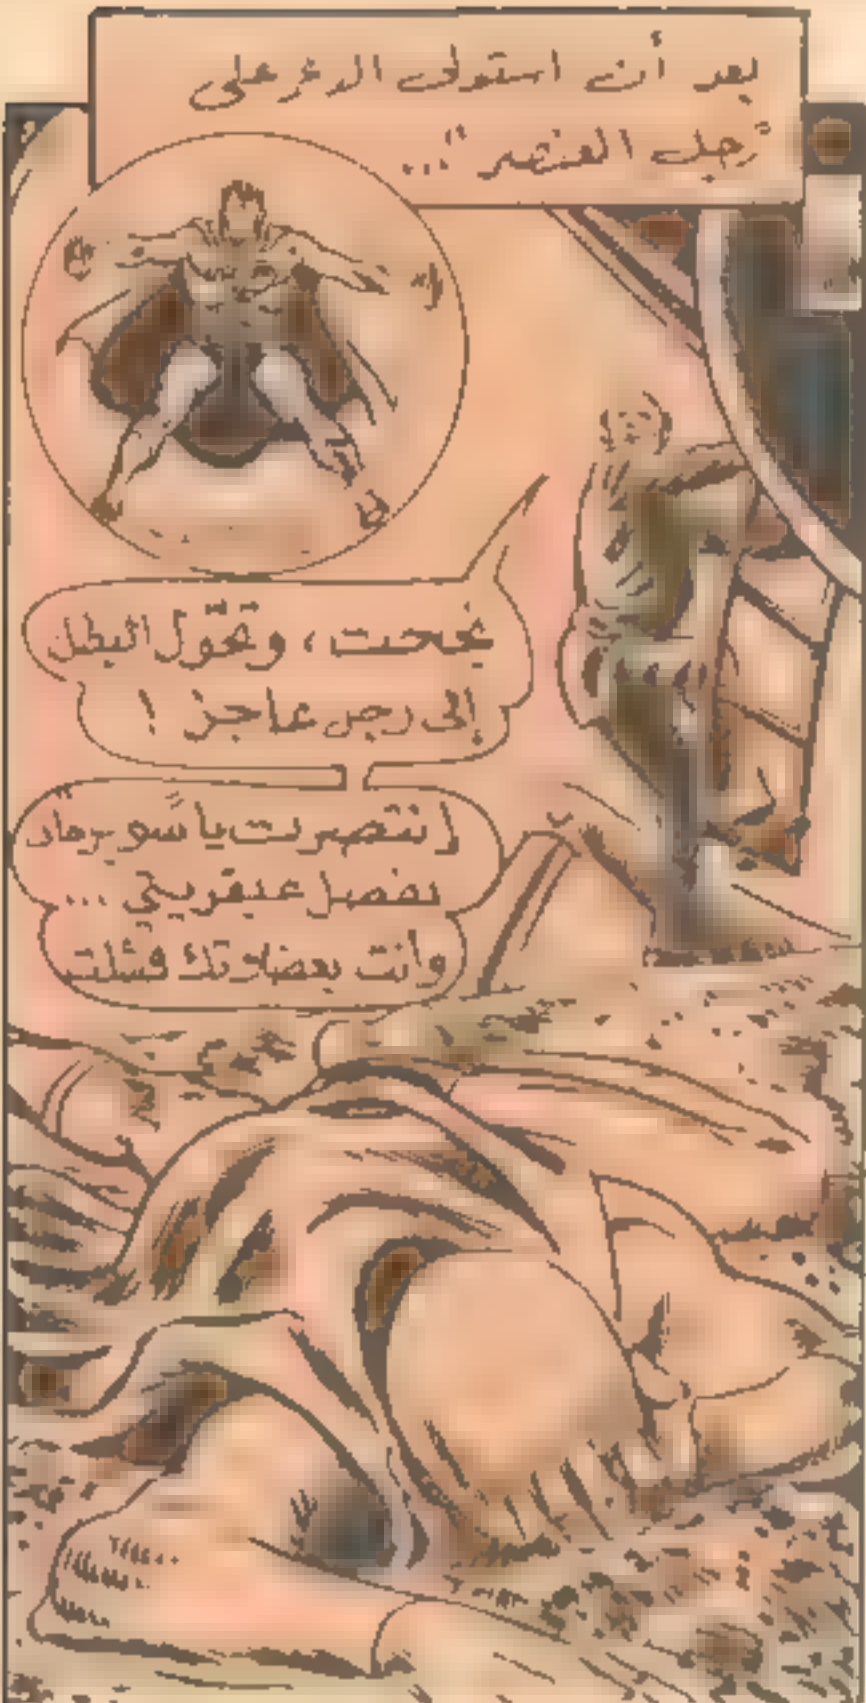 بعد أن استولى الدغر على
"رجل العنصر"...
نجحت، وتحوّل البطل
إلى رجل عاجز !
انتصرت يا سوبرمان
بفضل عبقريتي ...
وأنت بعضلاتك فشلت